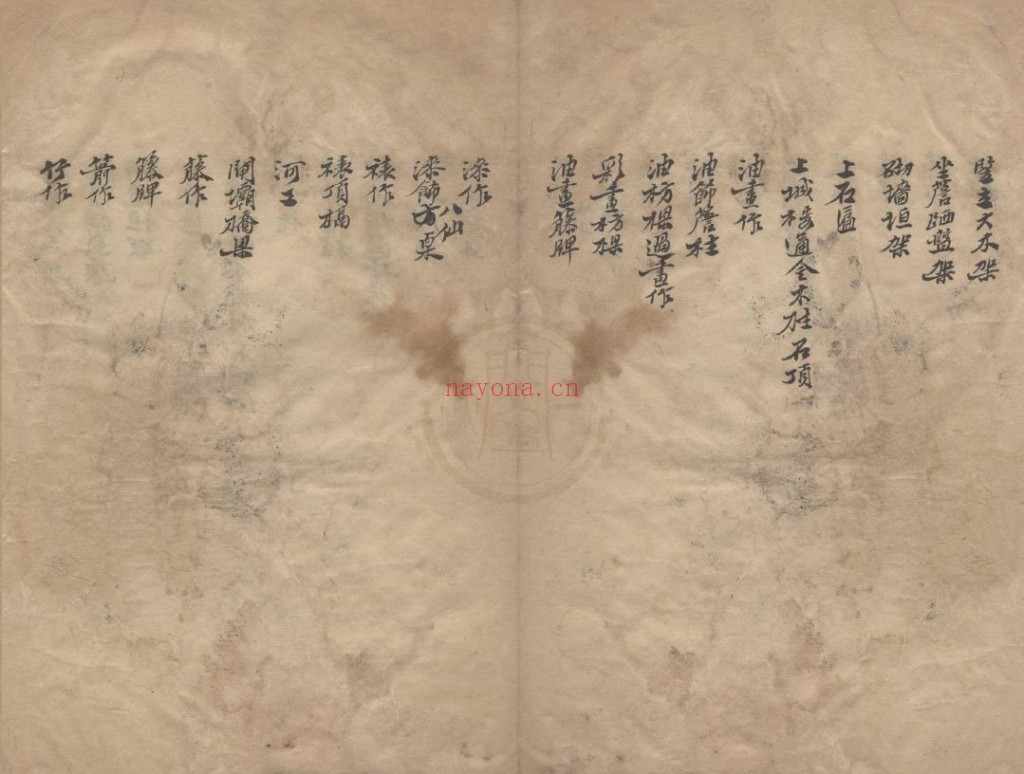 豎立大木架
坐簷晒盤架
砌墙垣架
上石匾
上城楼通金木柱石頂
油畫作
油飾簷柱
油枋樑過畫作
彩畫枋樑
油畫籐牌
漆作
漆飾八仙方桌
裱作
裱頂槅
河工
開壩橋梁
籐作
籐牌
箭作
竹作
nayona.cn